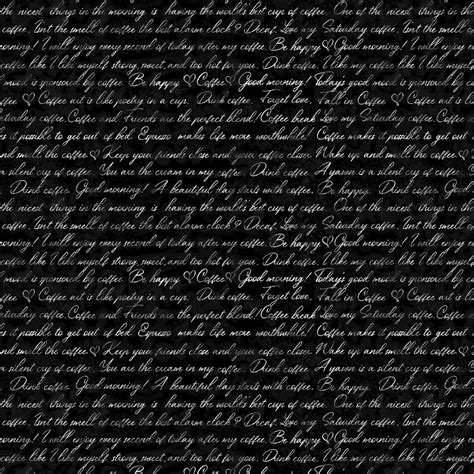 the nicest things in the morning is having the world's best cup of coffee. One of the nicest things in the
coffee. Isn't the smell of coffee the best alarm clock? Decaf. Love my Saturday coffee. Isn't the smell of
morning! I will enjoy every second of today after my coffee. Be happy! I will enjoy
coffee like I like myself strong, sweet, and too hot for you. Dink coffee! I like my coffee like I like
mood is sponsored by coffee Be happy ♡Coffee♡ Good morning! Today's good mood is sponsored by
♡Coffee art is like poetry in a cup. Dink coffee. Forget love. Fall in Coffee♡Coffee art is like
Saturday coffee.Coffee and Friends are the perfect blend! Coffee break Love my Saturday coffee.Coffee and
makes it possible to get out of bed. Espresso makes life more worthwhile! Coffee makes it possible to get out
and smell the coffee.♡Keep your friends close and your coffee Wake up and smell the coffee
is a silent cry of coffee. You are the cream in my coffee A yawn is a silent cry of coffee
Dink coffee. Good morning! A beautiful day starts with coffee. Be happy. Dink coffee. Good
the nicest things in the morning is having the world's best cup of coffee. One of the nicest things in the
coffee. Isn't the smell of coffee the best alarm clock? Decaf. Love my Saturday coffee. Isn't the smell of
morning! I will enjoy every second of today after my coffee. Be happy! I will enjoy
coffee like I like myself strong, sweet, and too hot for you. Dink coffee! I like my coffee like I like
mood is sponsored by coffee Be happy ♡Coffee♡ Good morning! Today's good mood is sponsored by
♡Coffee art is like poetry in a cup. Dink coffee. Forget love. Fall in Coffee♡Coffee art is like
Saturday coffee.Coffee and Friends are the perfect blend! Coffee break Love my Saturday coffee.Coffee and
makes it possible to get out of bed. Espresso makes life more worthwhile! Coffee makes it possible to get out
and smell the coffee.♡Keep your friends close and your coffee Wake up and smell the coffee
is a silent cry of coffee. You are the cream in my coffee A yawn is a silent cry of coffee
Dink coffee. Good morning! A beautiful day starts with coffee. Be happy. Dink coffee. Good
the nicest things in the morning is having the world's best cup of coffee. One of the nicest things in the
coffee. Isn't the smell of coffee the best alarm clock? Decaf. Love my Saturday coffee. Isn't the smell of
morning! I will enjoy every second of today after my coffee. Be happy! I will enjoy
coffee like I like myself strong, sweet, and too hot for you. Dink coffee! I like my coffee like I like